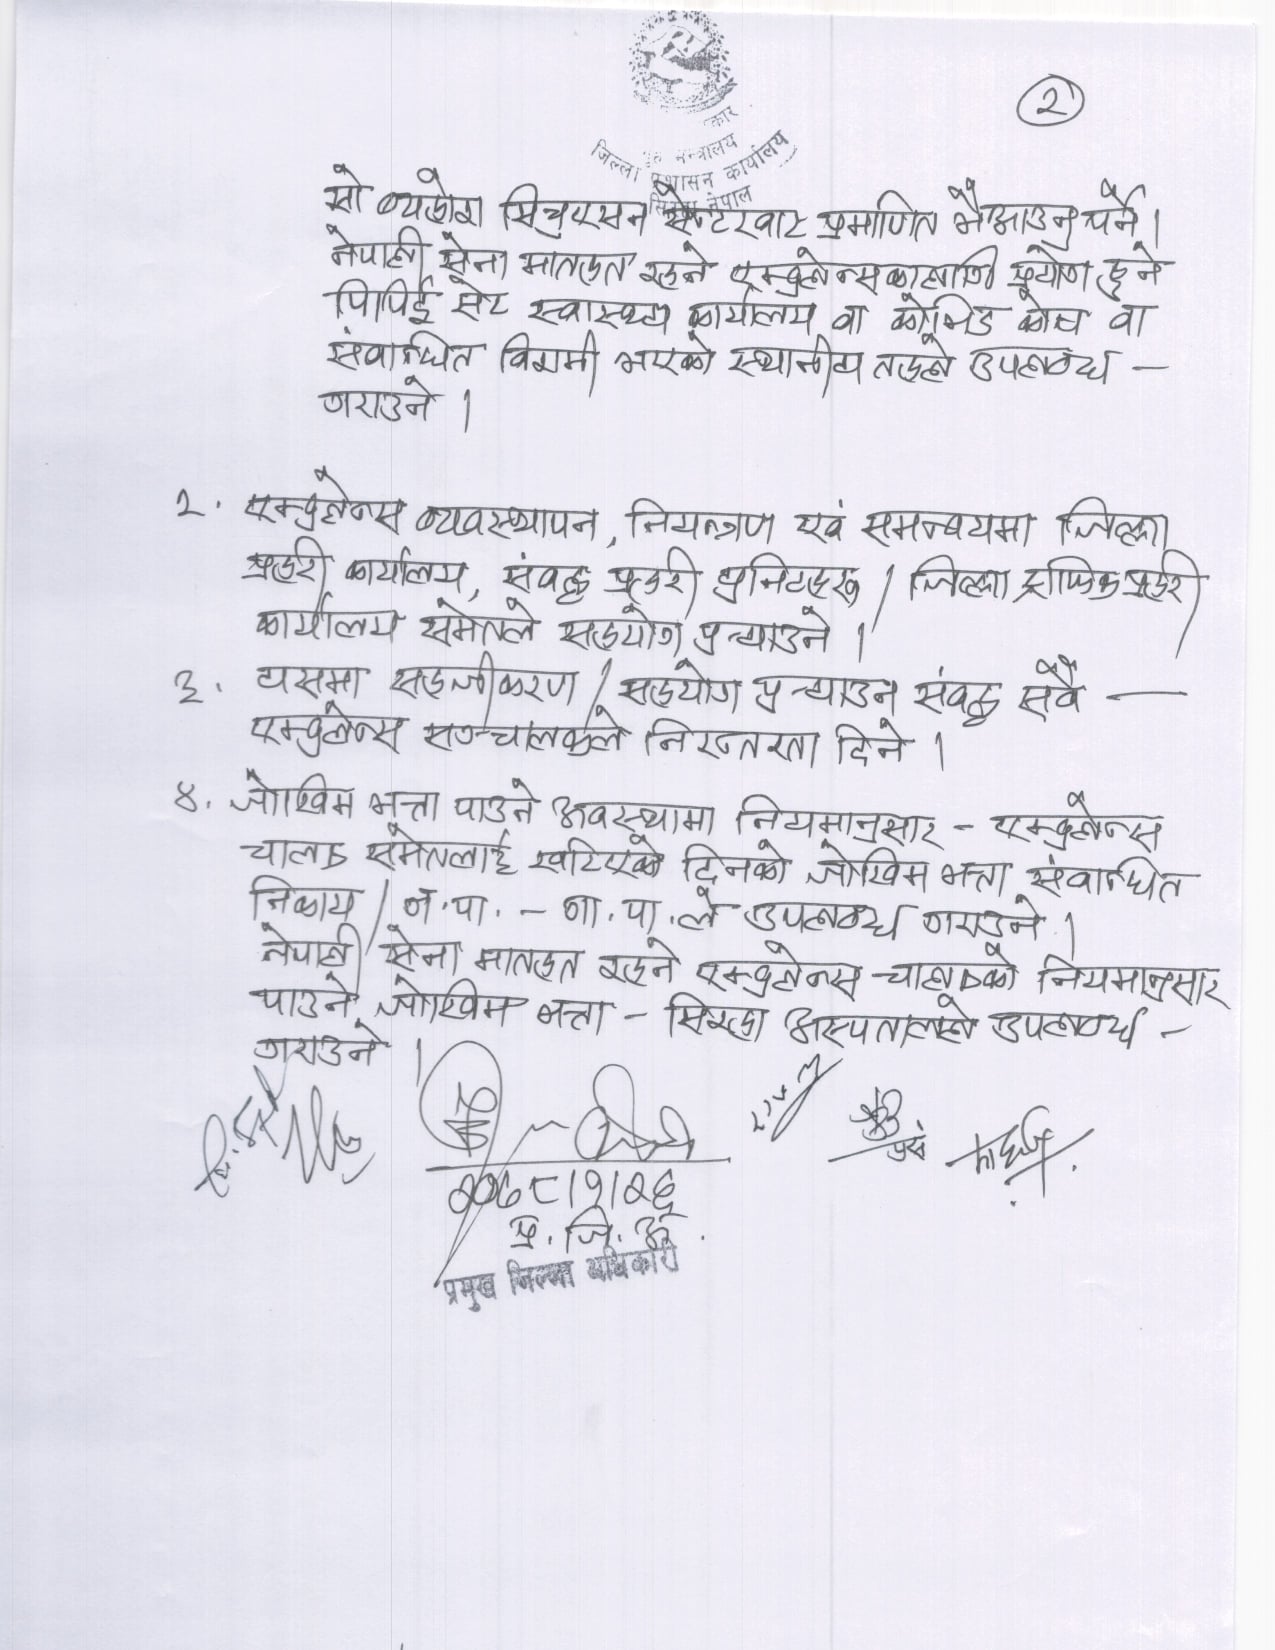 २
गृह मन्त्रालय
जिल्ला प्रशासन कार्यालय
नेपाल
सो व्यहोरा सिचुएसन सेन्टरबाट प्रमाणित भै आउनु पर्ने ।
नेपाली सेना मातहत रहने एम्बुलेन्सकालागि प्रयोग हुने
पिपिई सेट स्वास्थ्य कार्यालय वा कोभिड कोष वा
संवान्धित विरामी भएको स्थानीय तहले उपलब्ध –
गराउने ।
२. एम्बुलेन्स व्यवस्थापन, नियन्त्रण एवं समन्वयमा जिल्ला
प्रहरी कार्यालय, संवद्ध प्रहरी युनिटहरू / जिल्ला ट्राफिक प्रहरी
कार्यालय समेतले सहयोग पुर्‍याउने ।
३. यसमा सहजीकरण / सहयोग पुर्‍याउन संवद्ध सवै –
एम्बुलेन्स सञ्चालकले निरन्तरता दिने ।
४. जोखिम भत्ता पाउने अवस्थामा नियमानुसार – एम्बुलेन्स
चालक समेतलाई खटिएको दिनको जोखिम भत्ता संवान्धित
निकाय / न.पा. – गा.पा.ले उपलब्ध गराउने ।
नेपाली सेना मातहत रहने एम्बुलेन्स चालकको नियमानुसार
पाउने जोखिम भत्ता – सिरहा अस्पतालले उपलब्ध –
गराउने ।
२०७८/१/२६
प्र. जि. अ.
प्रमुख जिल्ला अधिकारी